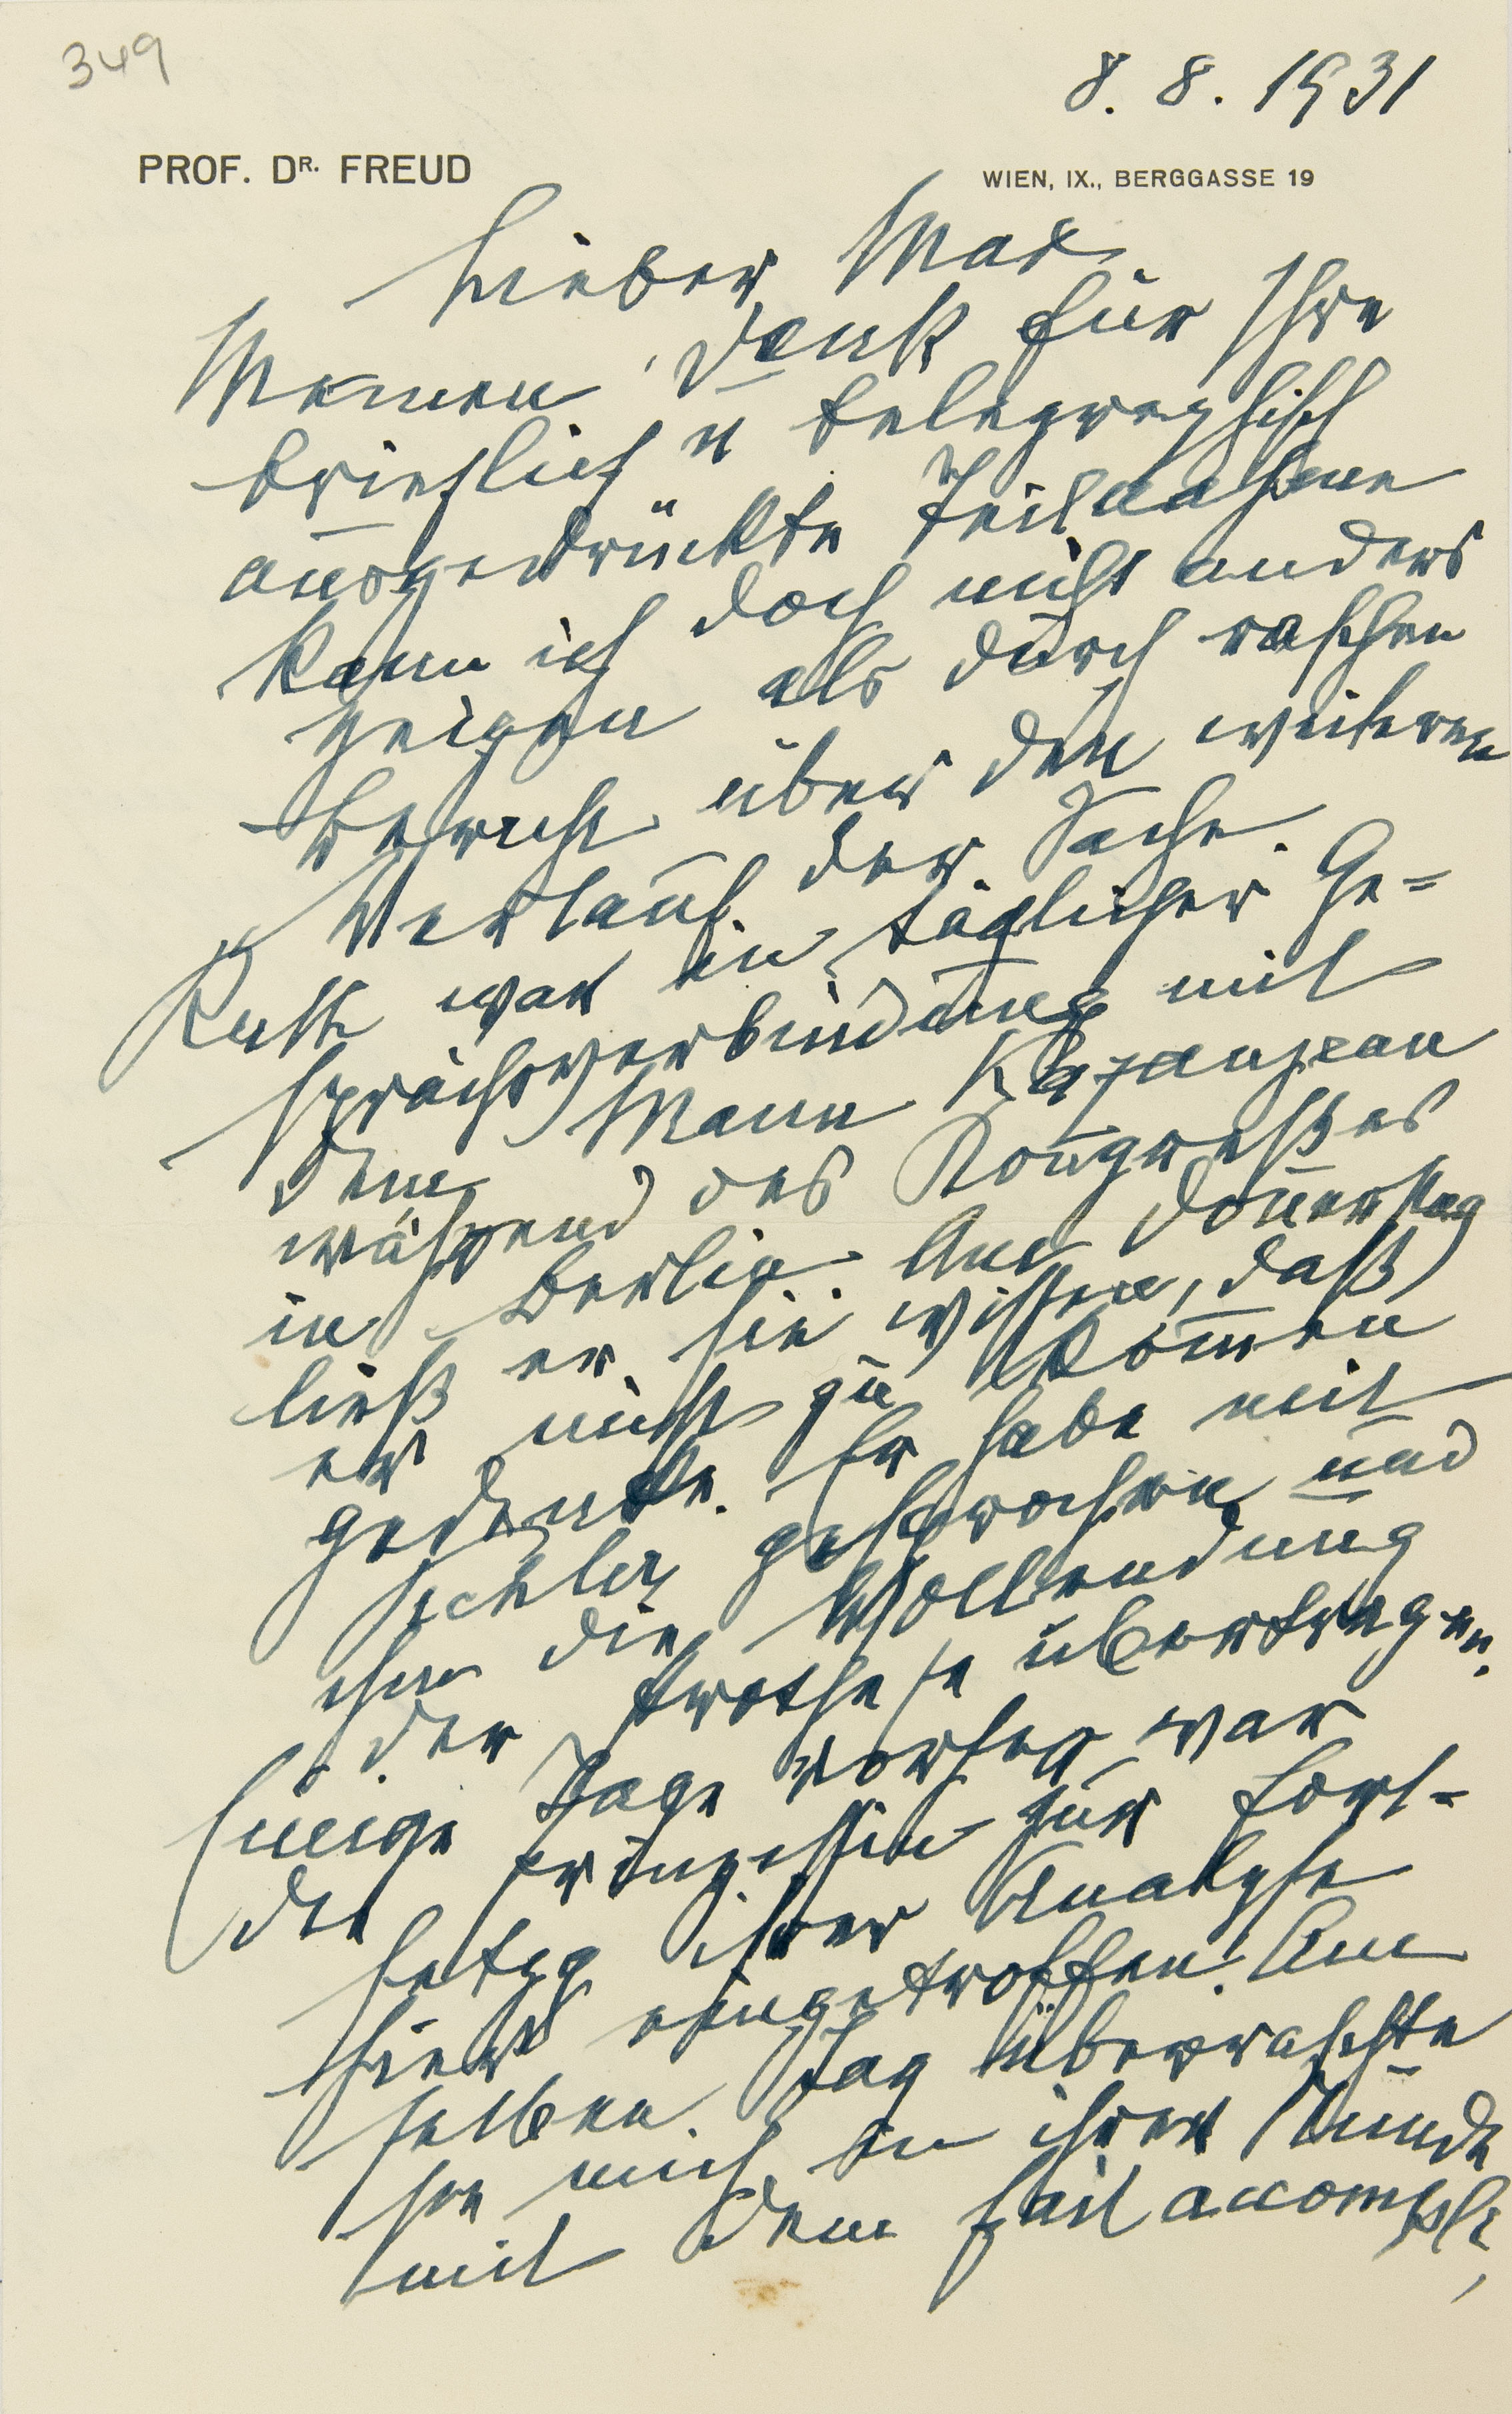 349
8. 8. 1931
PROF. DR. FREUD
WIEN, IX., BERGGASSE 19
Lieber Max
Meinen Dank für Ihre
brieflich u telegraphisch
ausgedrückte Teilnahme
kann ich doch nicht anders
zeigen als durch raschen
Bericht über den weiteren
Verlauf der Sache.
Ruth war in täglicher Ge=
sprächsverbindung mit
dem Mann Kazanjean
während des Kongreßes
in Berlin. Am Donnerstag
ließ er sie wissen, daß
er nicht zu kom̄en
gedenke. Er habe mit
gesprochen und
ihm die Vollendung
der Prothese übertragen.
Einige Tage vorher war
die Prinzessin zur Fort=
setzg ihrer Analyse
hier eingetroffen. Am
selben Tag überraschte
sie mich in ihrer Stunde
mit dem fait accompli,